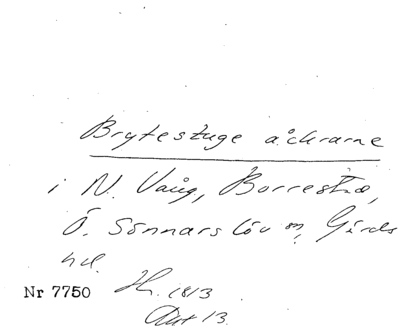 Brytestuge åckrarne
i N. Vång, Borrestad,
Ö. Sönnarslöv sn, Gärds
hd.
Nr 7750 H. 1813
Akt 13.